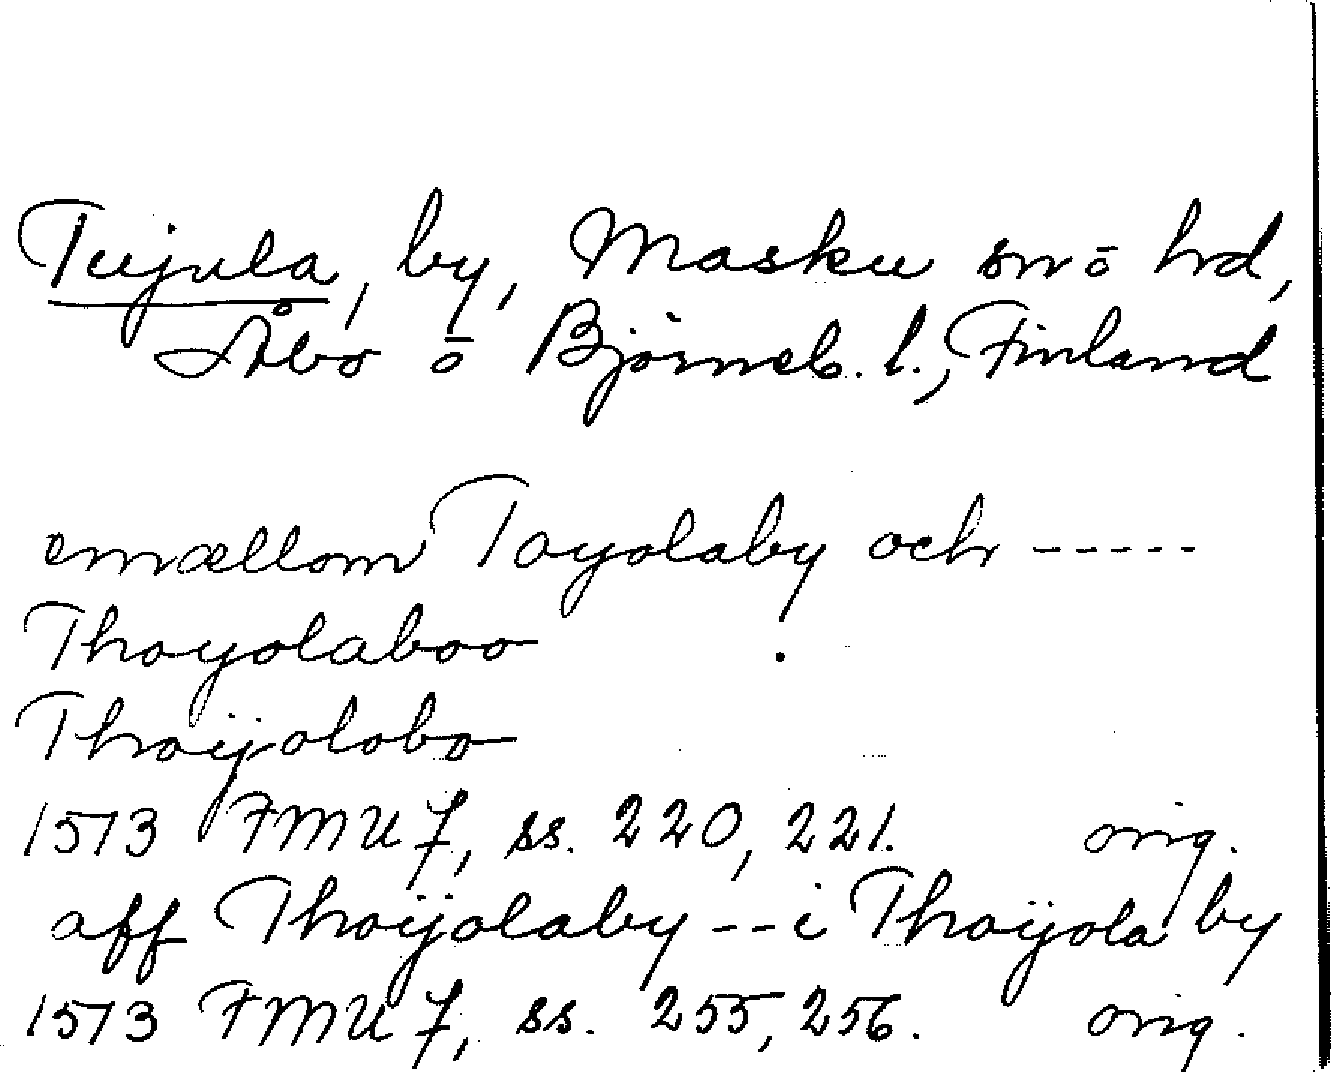 Tujula, by, Masku sn ō hd,
Åbo ō Björneb. l., Finland
emællom Toyolaby och -----
Thoyolaboo
Thoÿolobo
1513 FMU 7, ss. 220, 221. orig.
aff Thoÿolaby -- i Thoÿola by
1513 FMU 7, ss. 255, 256. orig.